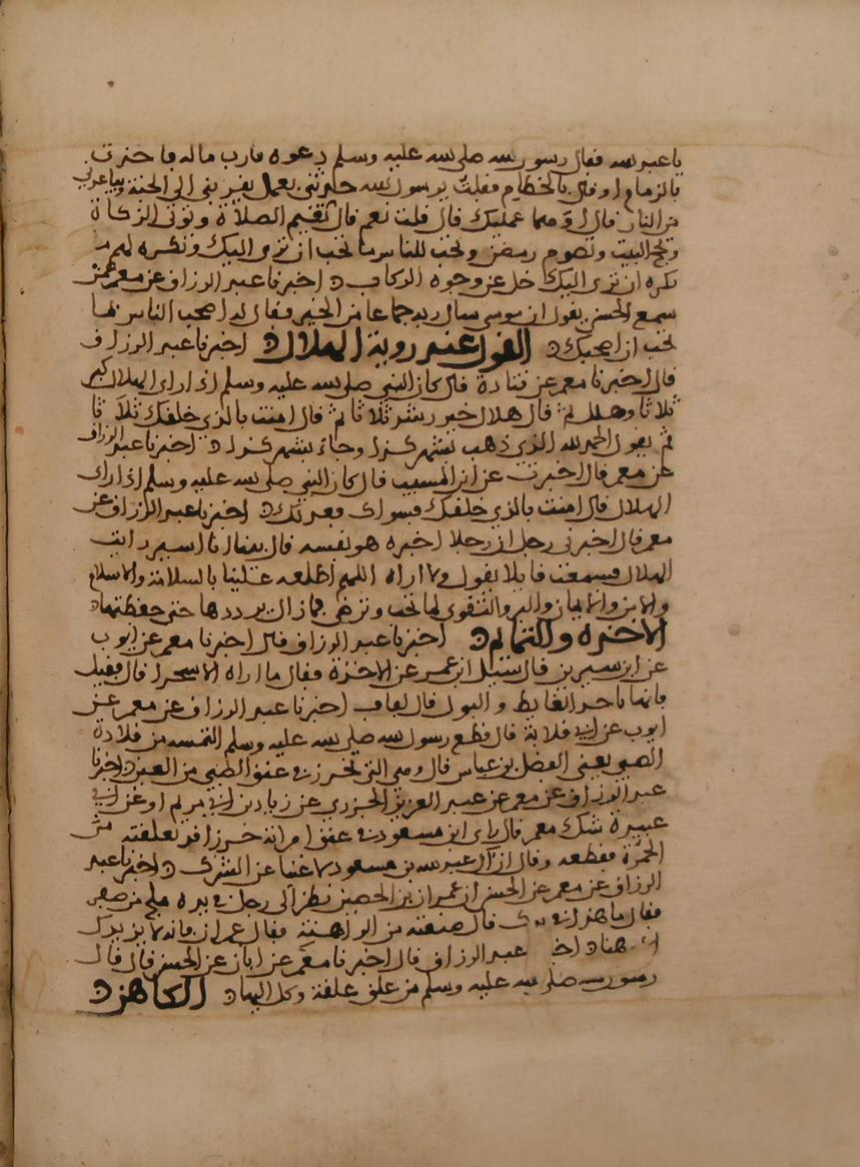 يا عبد الله فقال رسول الله صلى الله عليه وسلم دعوه فارب ماله فاخذت
بالزمام او قال بالخطام فقلت يرسول الله حدثني بعمل يقربني الى الجنة ويباعدني
من النار قال او مما عملك قال قلت نعم قال تقيم الصلاة وتوتي الزكاة
وتحج البيت وتصوم رمضن وتحب للناس ما تحب ان توتى اليك وتكره لهم ما
تكره ان توتى اليك خل عن وجوه الركاب اخبرنا عبد الرزاق عن معمر عمن
سمع الحسن يقول ان موسى سال ربه جماعا من الخير فقال له اصحب الناس بما
تحب ان اصحبك به القول عند روية الهلال اخبرنا عبد الرزاق
قال اخبرنا معمر عن قتادة قال كان النبي صلى الله عليه وسلم اذا راى الهلال كبر
ثلاثا وهلل ثم قال هلال خير رشد ثلاثا ثم قال امنت بالذي خلقك ثلاثا
ثم يقول الحمد لله الذي ذهب بشهر كذا وجاء بشهر كذا اخبرنا عبد الرزاق
عن معمر قال اخبرت عن ابن المسيب قال كان النبي صلى الله عليه وسلم اذا راى
الهلال قال امنت بالذي خلقك فسواك فعدلك اخبرنا عبد الرزاق عن
معمر قال اخبرني رجل ان رجلا اخبره هو نفسه قال بينا انا اسير رايت
الهلال فسمعت قايلا يقول ولا اراه اللهم اطلعه علينا بالسلامة والاسلام
والامن والايمان والبر والتقوى لما تحب وترضى فما زال يرددها حتى حفظتها
الاخذة والتمايم اخبرنا عبد الرزاق قال اخبرنا معمر عن ايوب
عن ابن سيرين قال سئل ابن عمر عن الاخذة فقال ما اراه الا سحرا قال فقيل
فانها تاخذ الغايط والبول قال اخبرنا عبد الرزاق عن معمر عن
ايوب عن ابي قلابة قال قطع رسول الله صلى الله عليه وسلم التميمة من قلادة
الصبي يعني الفضل بن عباس قال وهي التي تخرز في عنق الصبي من العين اخبرنا
عبد الرزاق عن معمر عن عبد الكريم الجزري عن زياد بن ابي مريم او عن ابي
عبيدة شك معمر قال راى ابن مسعود في عنق امراته خرزا قد تعلقته من
الحمرة فقطعه وقال ان ال عبد الله بن مسعود لاغنيا عن الشرك اخبرنا عبد
الرزاق عن معمر عن الحسن ان عمران بن الحصين نظر الى رجل في يده من صفر
فقال ما هذا في يدك قال صنعته من الواهنة فقال عمران فانه لا يزيدك
الا وهنا اخ عبد الرزاق قال اخبرنا معمر عن ابان عن الحسن قال قال
رسول الله صلى الله عليه وسلم من علق علقة وكل اليها الكاهن